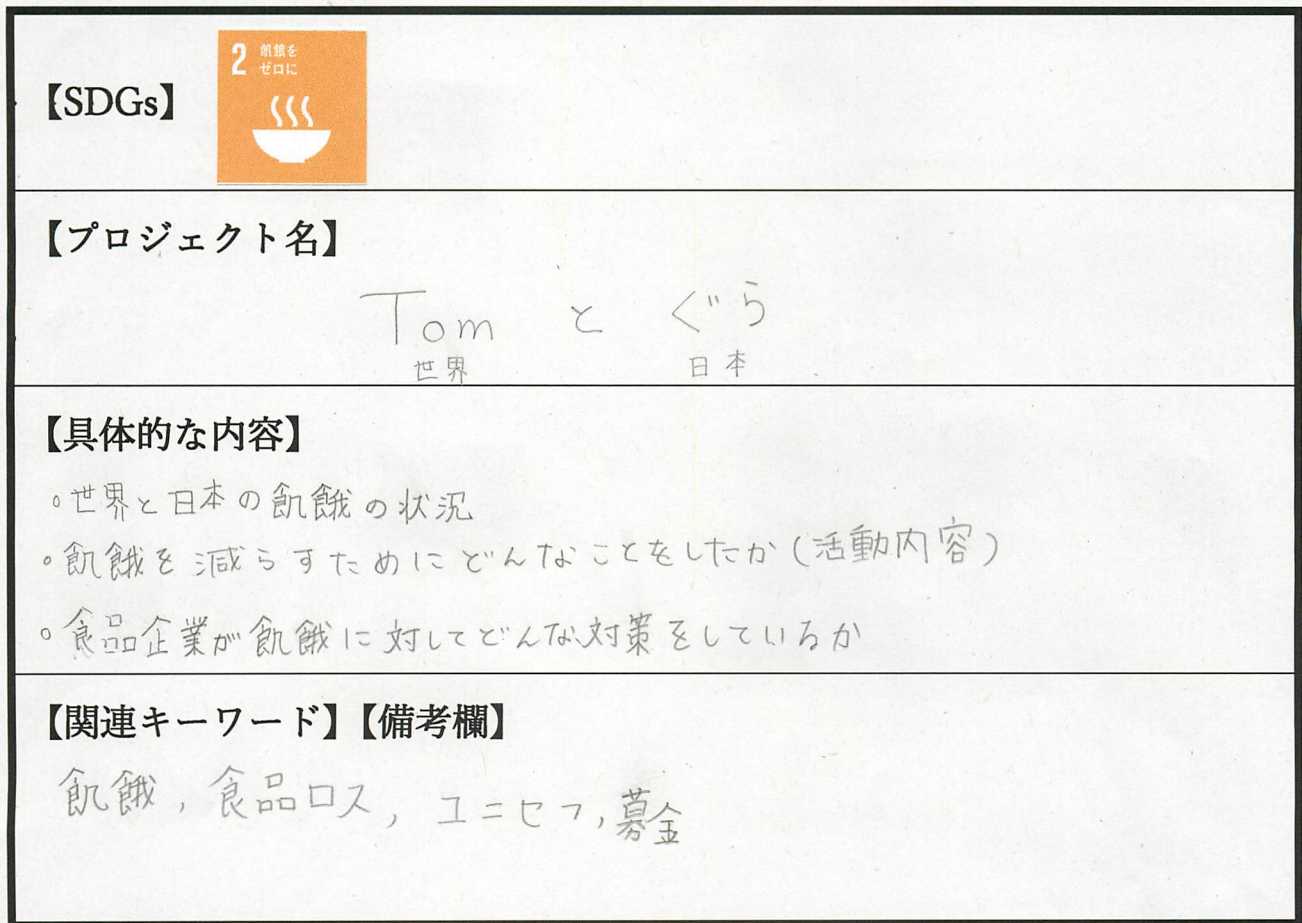 【SDGs】
2 飢餓を
ゼロに
【プロジェクト名】
Tom と ぐら
世界 日本
【具体的な内容】
。世界と日本の飢餓の状況
。飢餓を減らすためにどんなことをしたか(活動内容)
。食品企業が飢餓に対してどんな対策をしているか
【関連キーワード】【備考欄】
飢餓, 食品ロス, ユニセフ, 募金